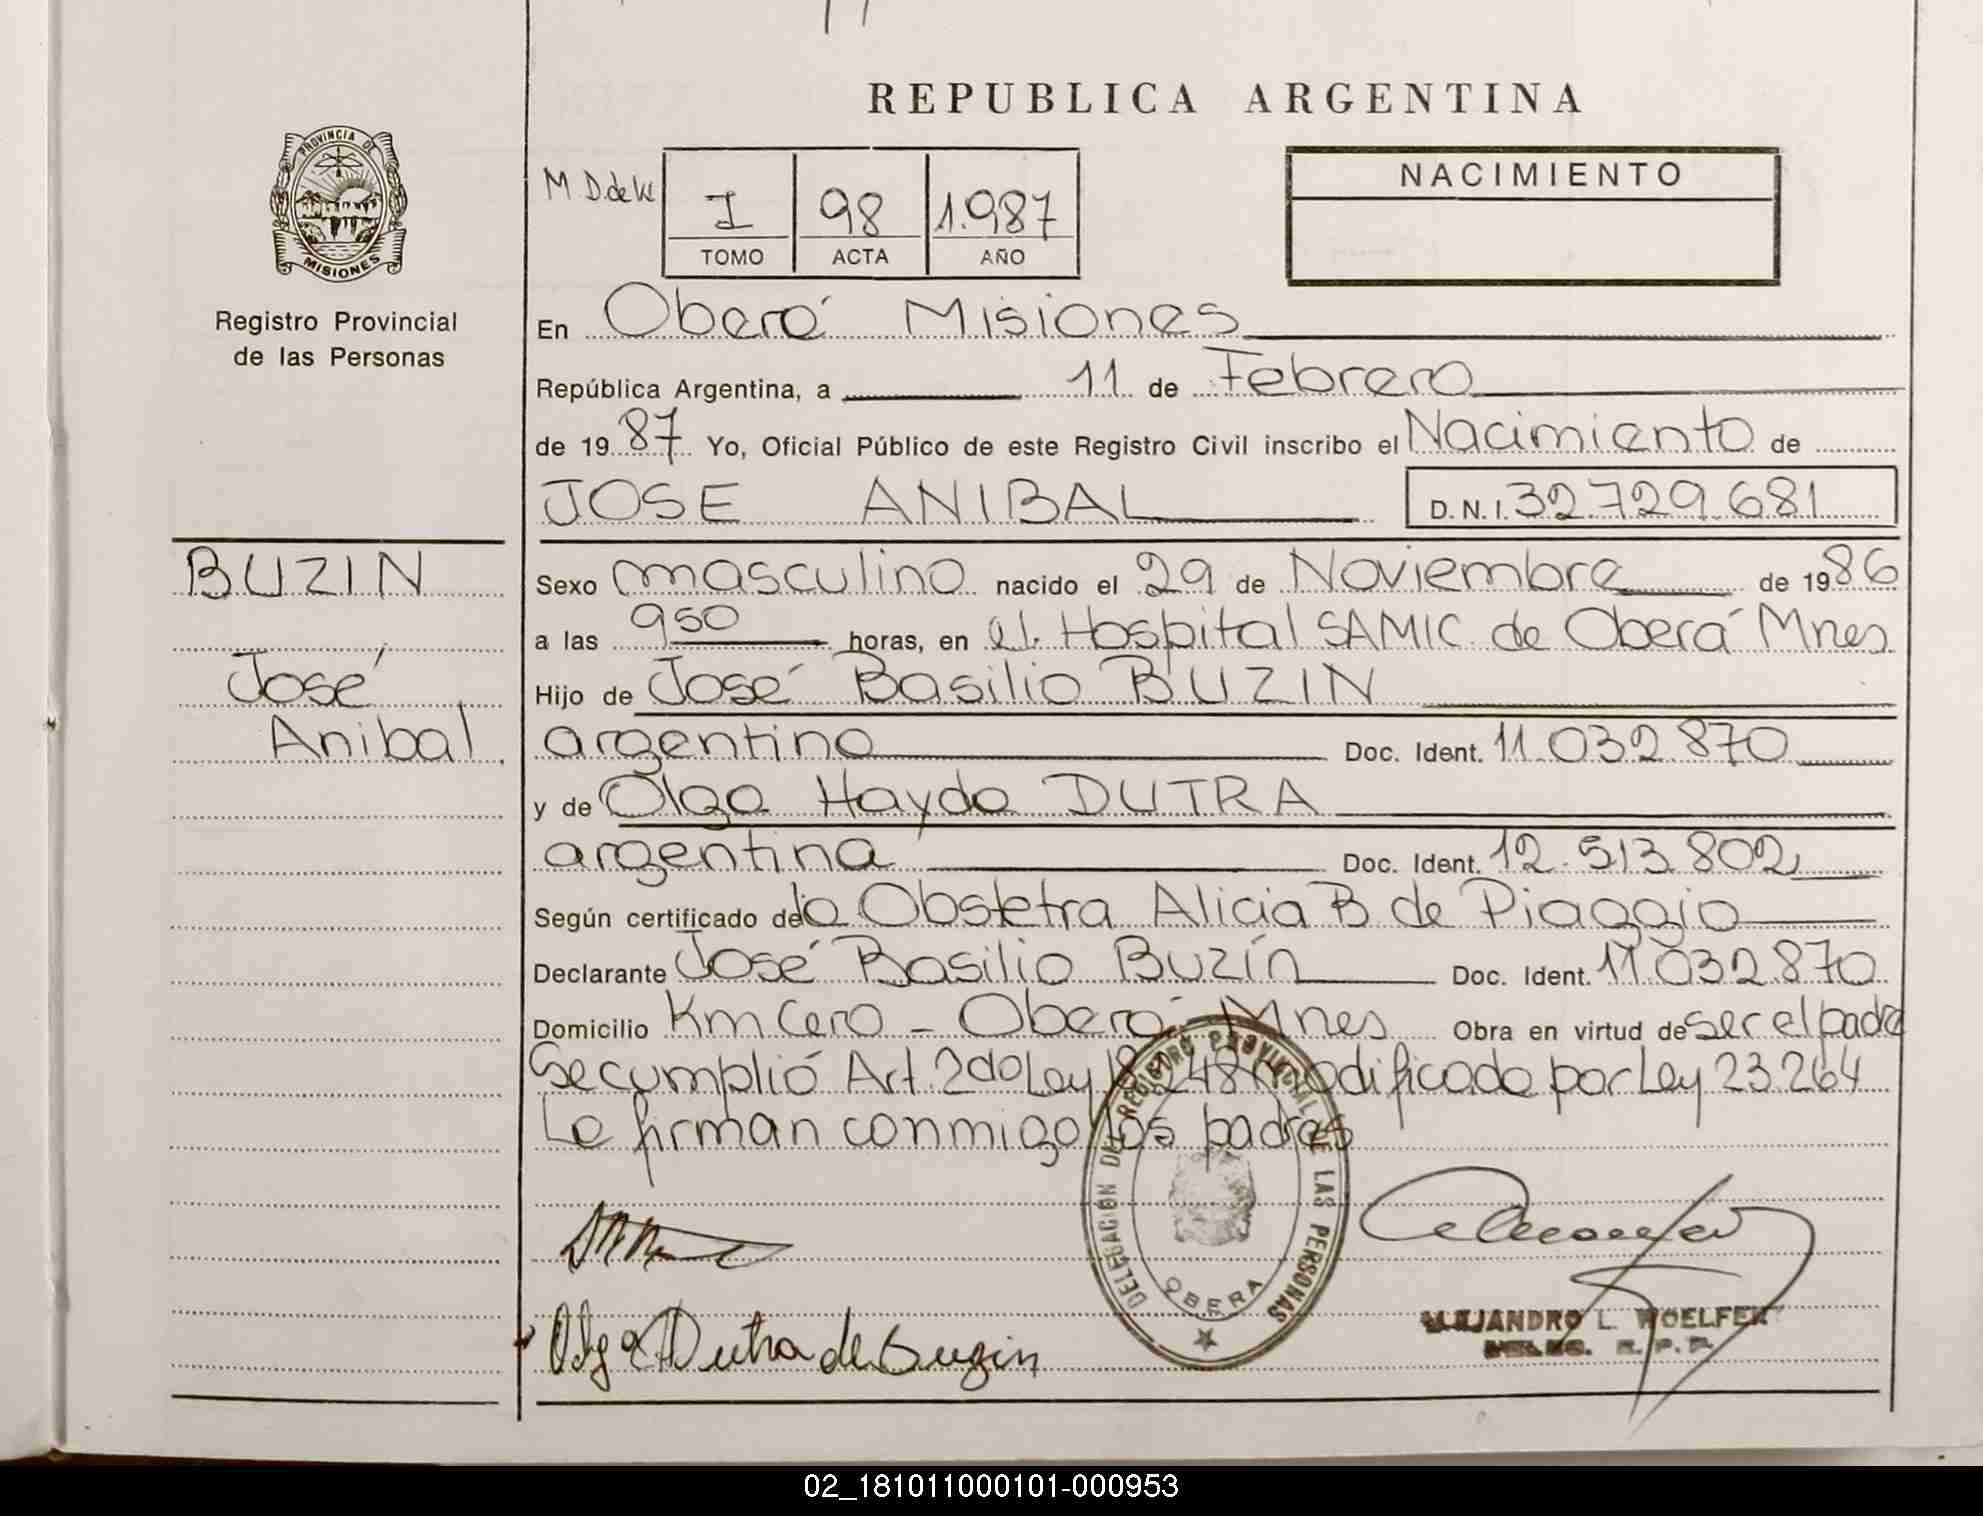 REPUBLICA ARGENTINA
PROVINCIA DE
MISIONES
Registro Provincial
de las Personas
M D.de
I 98 1.987
TOMO ACTA AÑO
NACIMIENTO
En Oberá Misiones
República Argentina, a 11 de Febrero
de 1987 Yo, Oficial Público de este Registro Civil inscribo el Nacimiento de
JOSE ANIBAL D.N.I. 32.729.681
BUZIN
José
Anibal
Sexo masculino nacido el 29 de Noviembre de 1986
a las 950 horas, en el Hospital SAMIC de Oberá Mnes
Hijo de José Basilio BUZIN
argentino Doc. Ident. 11.032.870
y de Olga Hayde DUTRA
argentina Doc. Ident. 12.513.802
Según certificado de la Obstetra Alicia B de Piaggio
Declarante José Basilio Buzín Doc. Ident. 11.032.870
Domicilio Km Cero - Oberá Mnes Obra en virtud de ser el padre
Se cumplió Art. 2do Ley 18.248 modificado por Ley 23.264
Le firman conmigo los padres
DELEGACION DEL REGISTRO PROVINCIAL DE LAS PERSONAS
OBERA
Olga H Dutra de Buzin
ALEJANDRO L. WOELFERT
DELEG. R.P.P.
02_181011000101-000953